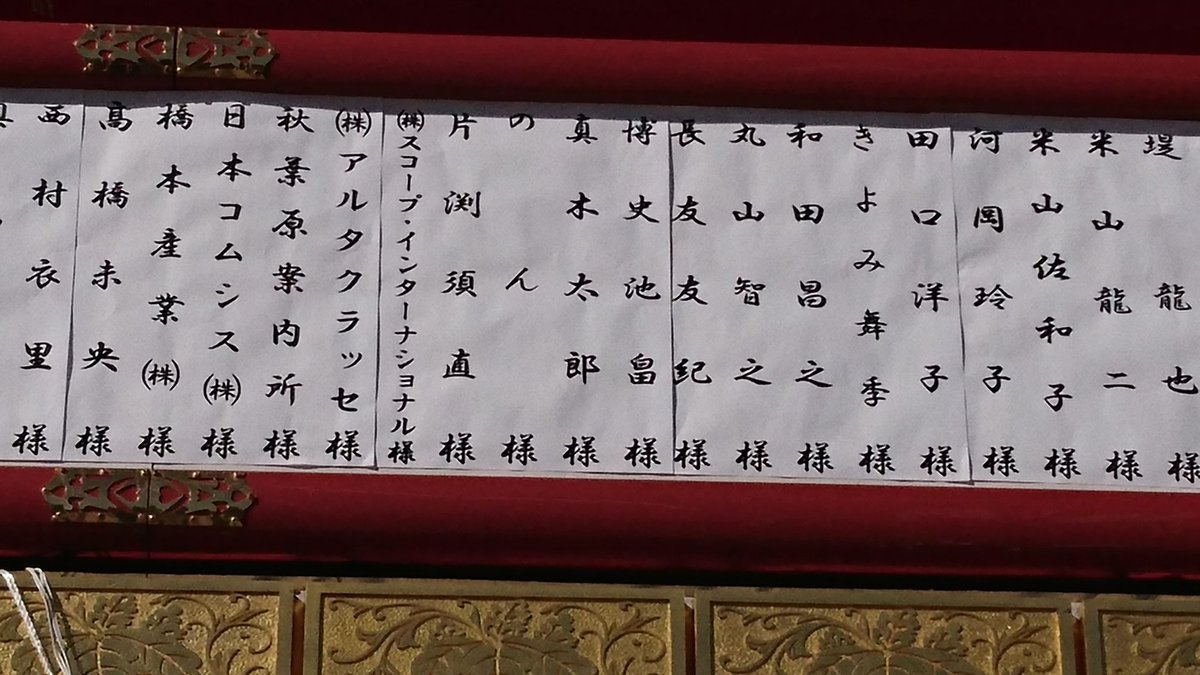 堤龍也様
米山龍二様
米山佐和子様
河岡玲子様
田口洋子様
きよみ舞季様
和田昌之様
丸山智之様
長友友紀様
博史池畠様
真木太郎様
のん様
片渕須直様
㈱スコープ・インターナショナル様
㈱アルタクラッセ様
秋葉原案内所様
日本コムシス㈱様
橋本産業㈱様
髙橋未央様
西村衣里様